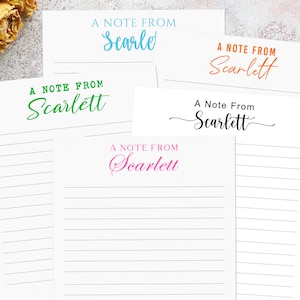 A NOTE FROM
Scarle
A NOTE FROM
Scarlett
A NOTE FROM
Scarlett
A Note From
Scarlett
A NOTE FROM
Scarlett